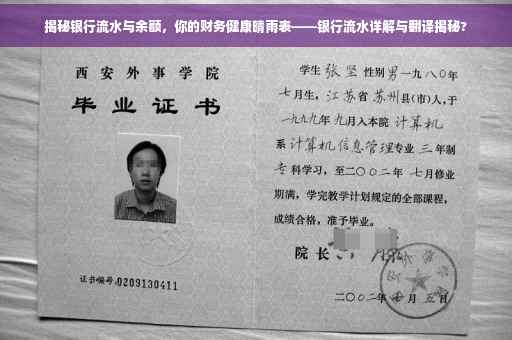 揭秘银行流水与余额，你的财务健康晴雨表——银行流水详解与翻译揭秘？
西安外事学院
毕业证书
证书编号:0209130411
学生 张坚 性别 男 一九八〇年
七月生，江苏省 苏州 县(市)人，于
一九九九年 九月入本院 计算机
系 计算机信息管理专业 三 年制
专 科学习，至二〇〇二年 七月修业
期满，学完教学计划规定的全部课程，
成绩合格，准予毕业。
院 长
二〇〇二年 七 月 五 日